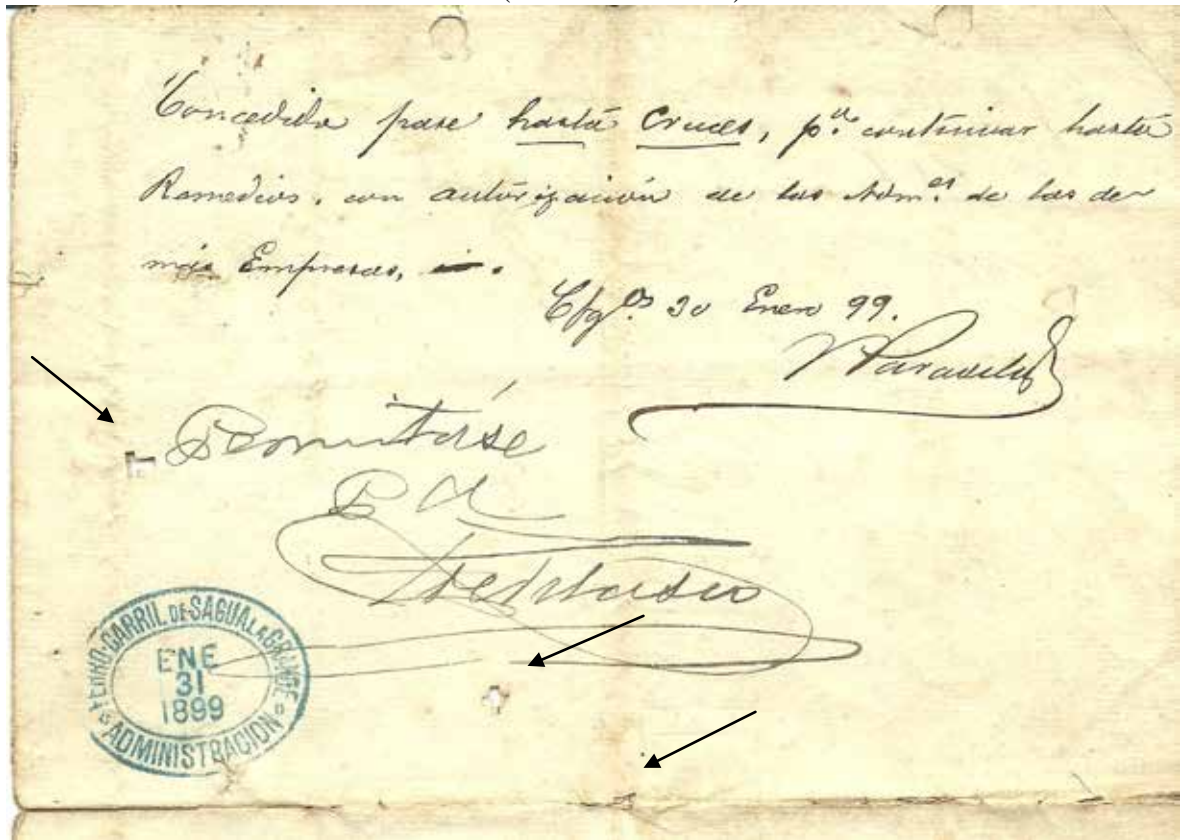 Concedido pase hasta Cruces, p.ª continuar hasta
Remedios, con autorización de los Adm.es de las de
más Empresas,
Cfg.os 30 Enero 99.
FERRO-CARRIL DE SAGUA LA GRANDE
ENE
31
1899
ADMINISTRACION